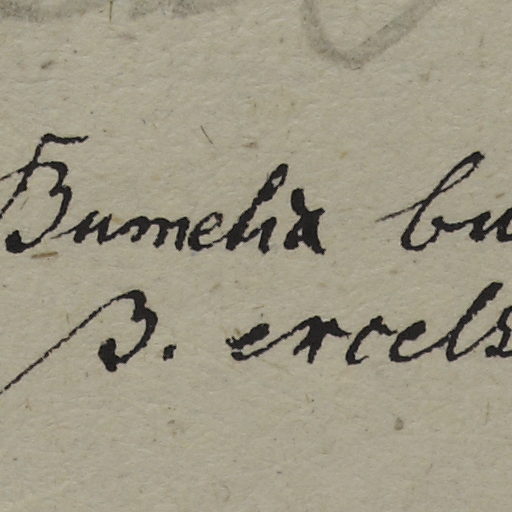 Bumelia bu
β. excels